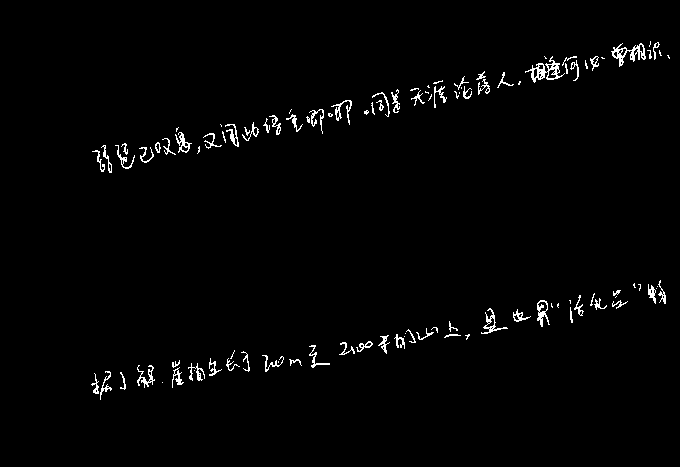 琵琶已叹息，又闻此语重唧唧。同是天涯沦落人，相逢何必曾相识、
据了解，崖柏生长于700m至2100米的山上，是世界“活化石”